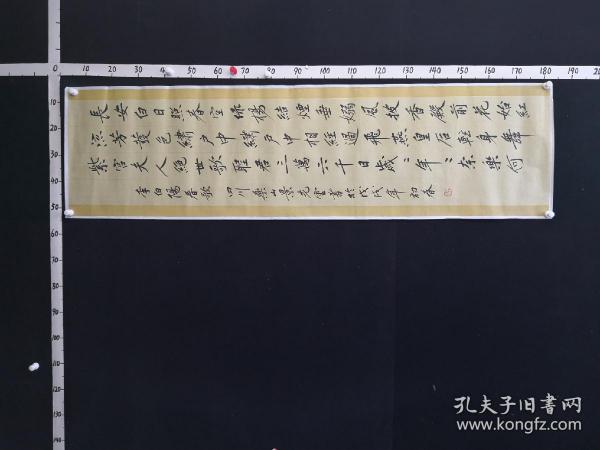 0 10 20 30 40 50 60 70 80 90 100 110 120 130 140 150 160 170 180 190 20
10
20
30
40
50
60
70
80
90
100
110
120
130
140
長安白日照春空綠楊結煙垂嫋風披香殿前花始紅
流芳發色繡戶中繡戶中相經過飛燕皇后輕身舞
紫宮夫人絕世歌聖君三萬六千日歲〻年〻奈樂何
李白陽春歌 四川樂山景光雲 戊戌年初春
孔夫子旧书网
www.kongfz.com